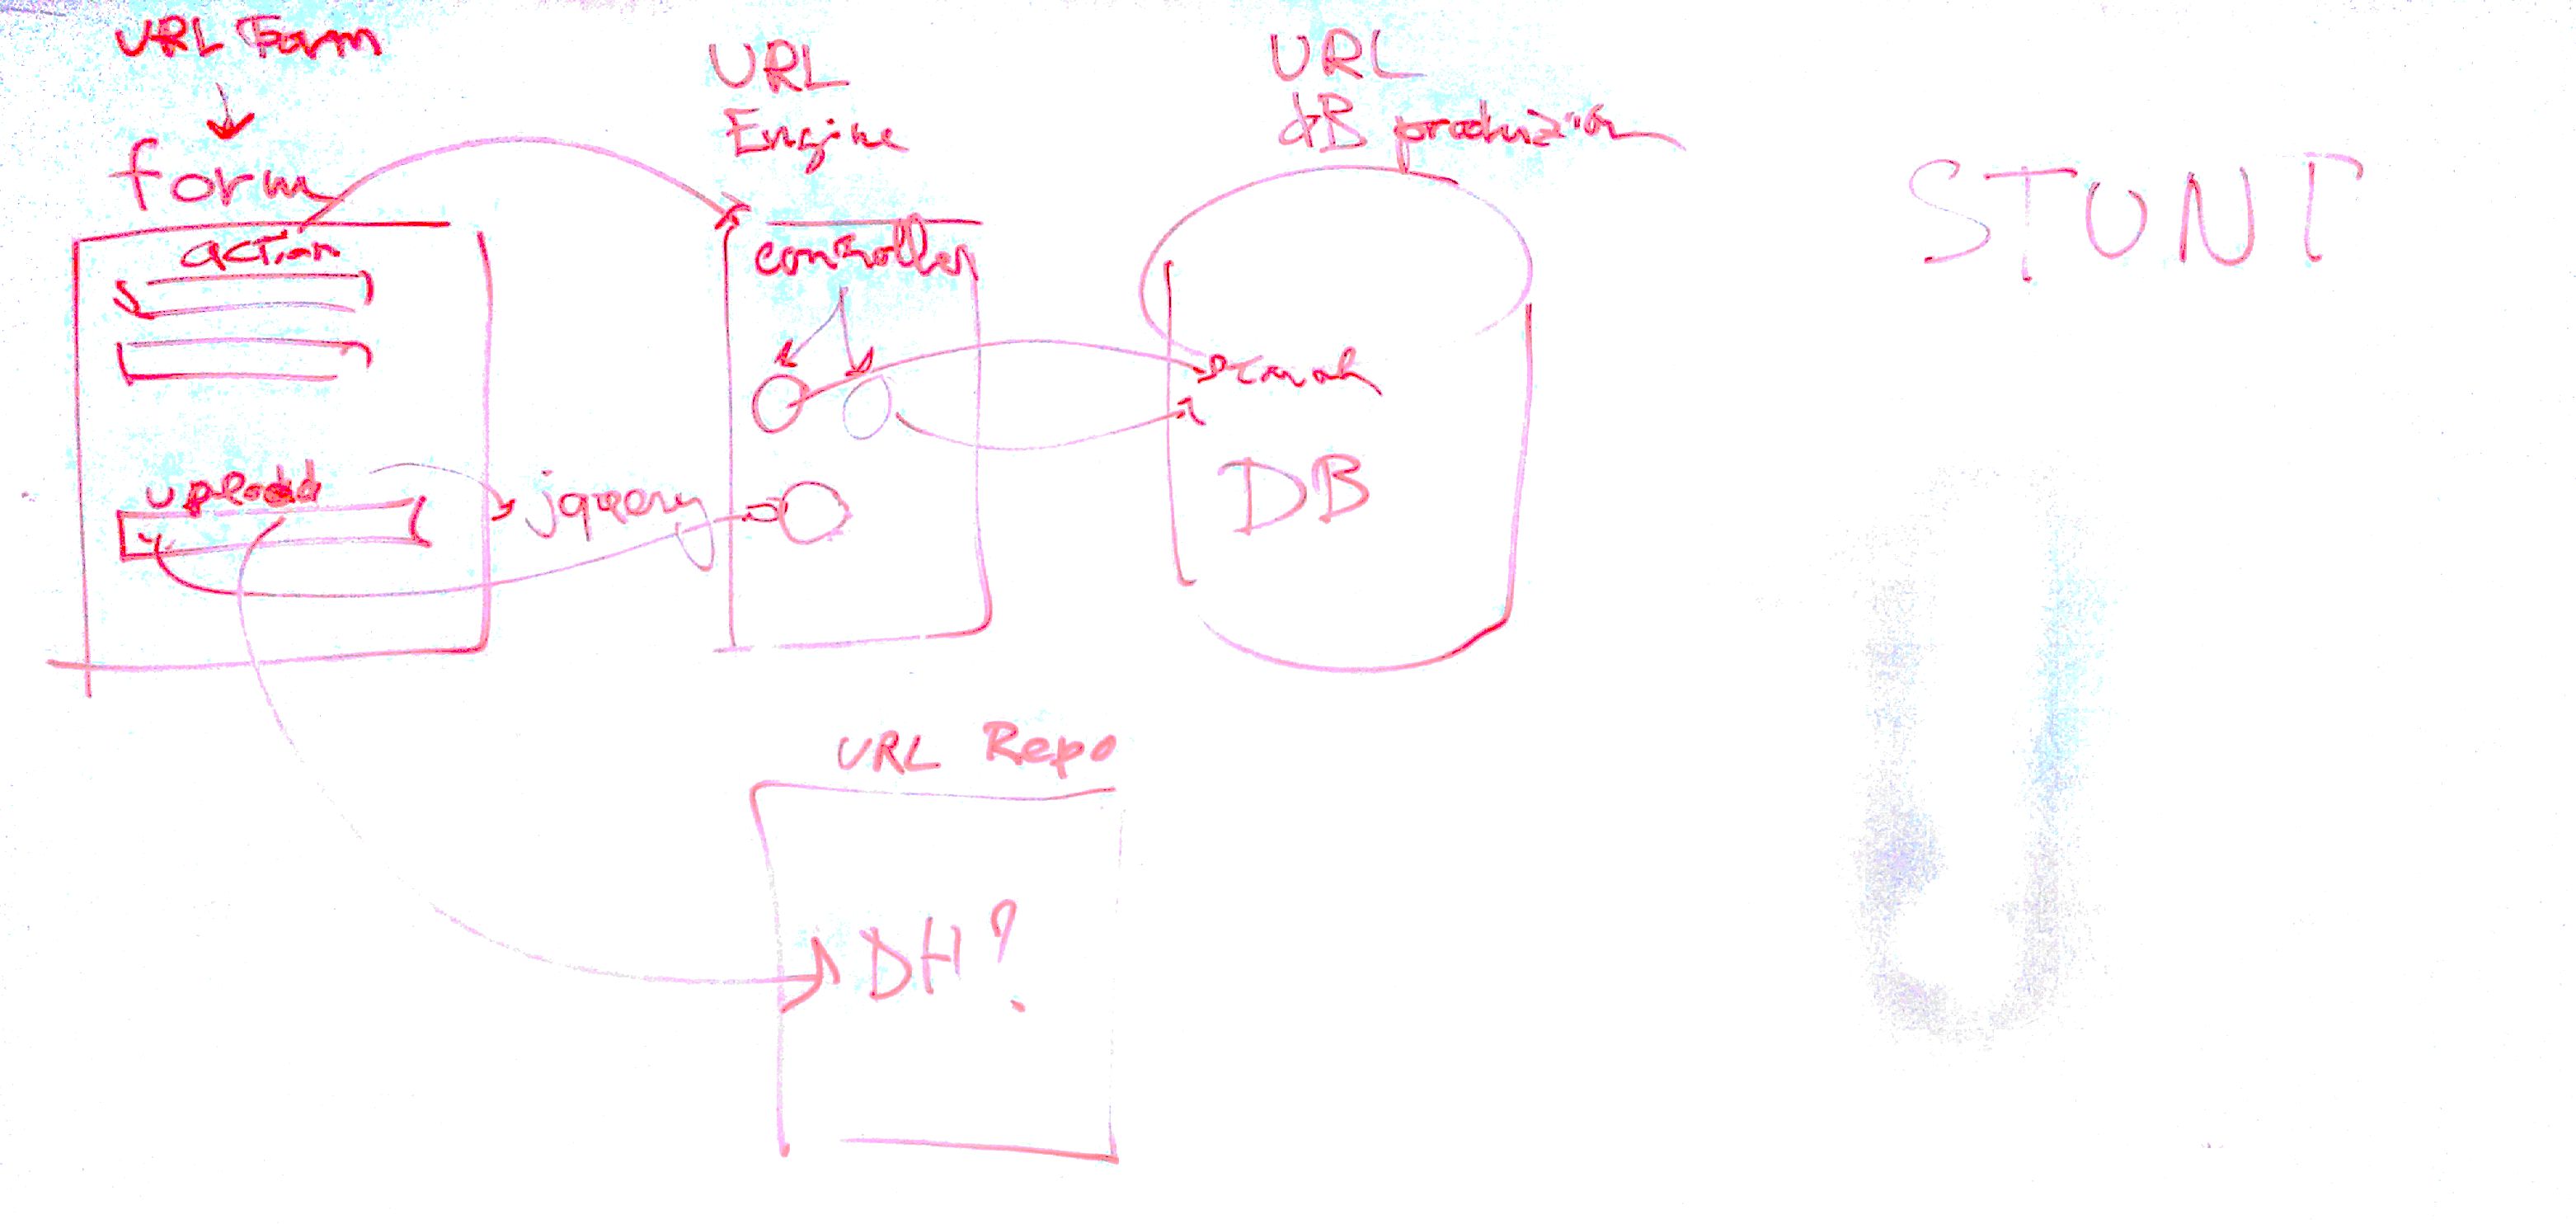 URL Form
form
action
upload
jquery
URL
Engine
controller
URL
dB produzion
DB
URL Repo
DH?
STUNT